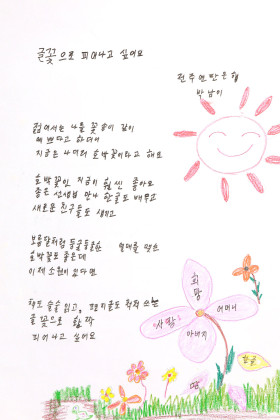 글꽃으로 피어나고 싶어요
전주연만은협
박남이
젊어서는 나를 꽃 같이
예쁘다고 하더니
지금은 나더러 호박꽃이라고 해요
호박꽃인 지금이 훨씬 좋아요
좋은 선생님 만나 한글도 배우고
새로운 친구들도 생기고
보름달처럼 둥글둥글한 열매를 맺는
호박꽃도 좋은데
이제 소원이 있다면
책도 술술 읽고, 편지글도 척척 쓰는
글꽃으로 활짝
피어나고 싶어요
희망
사랑
어머니
아버지
한글
땅